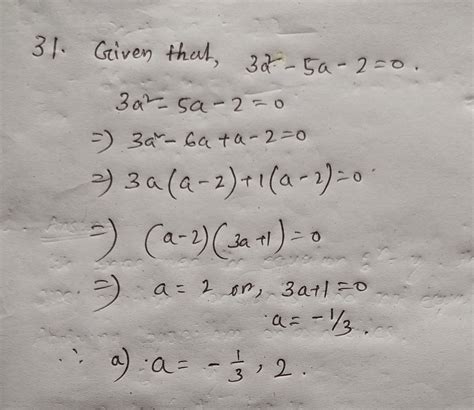 31. Given that, 3a² - 5a - 2 = 0.
3a² - 5a - 2 = 0
=) 3a² - 6a + a - 2 = 0
=) 3a(a-2)+1(a-2)=0
=) (a-2)(3a+1)=0
=) a = 2 or, 3a+1=0
a = -1/3.
∴ a) a = -1/3, 2.